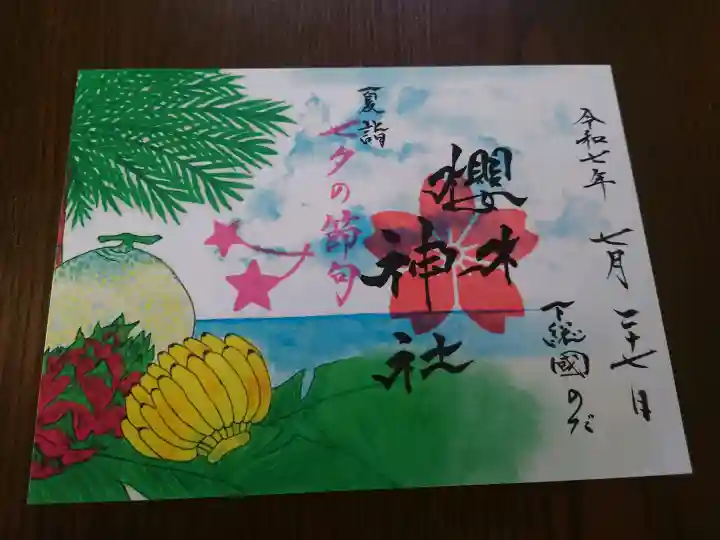 令和七年
七月二十七日
下総國のだ
櫻木
神社
夏詣
七夕の節句